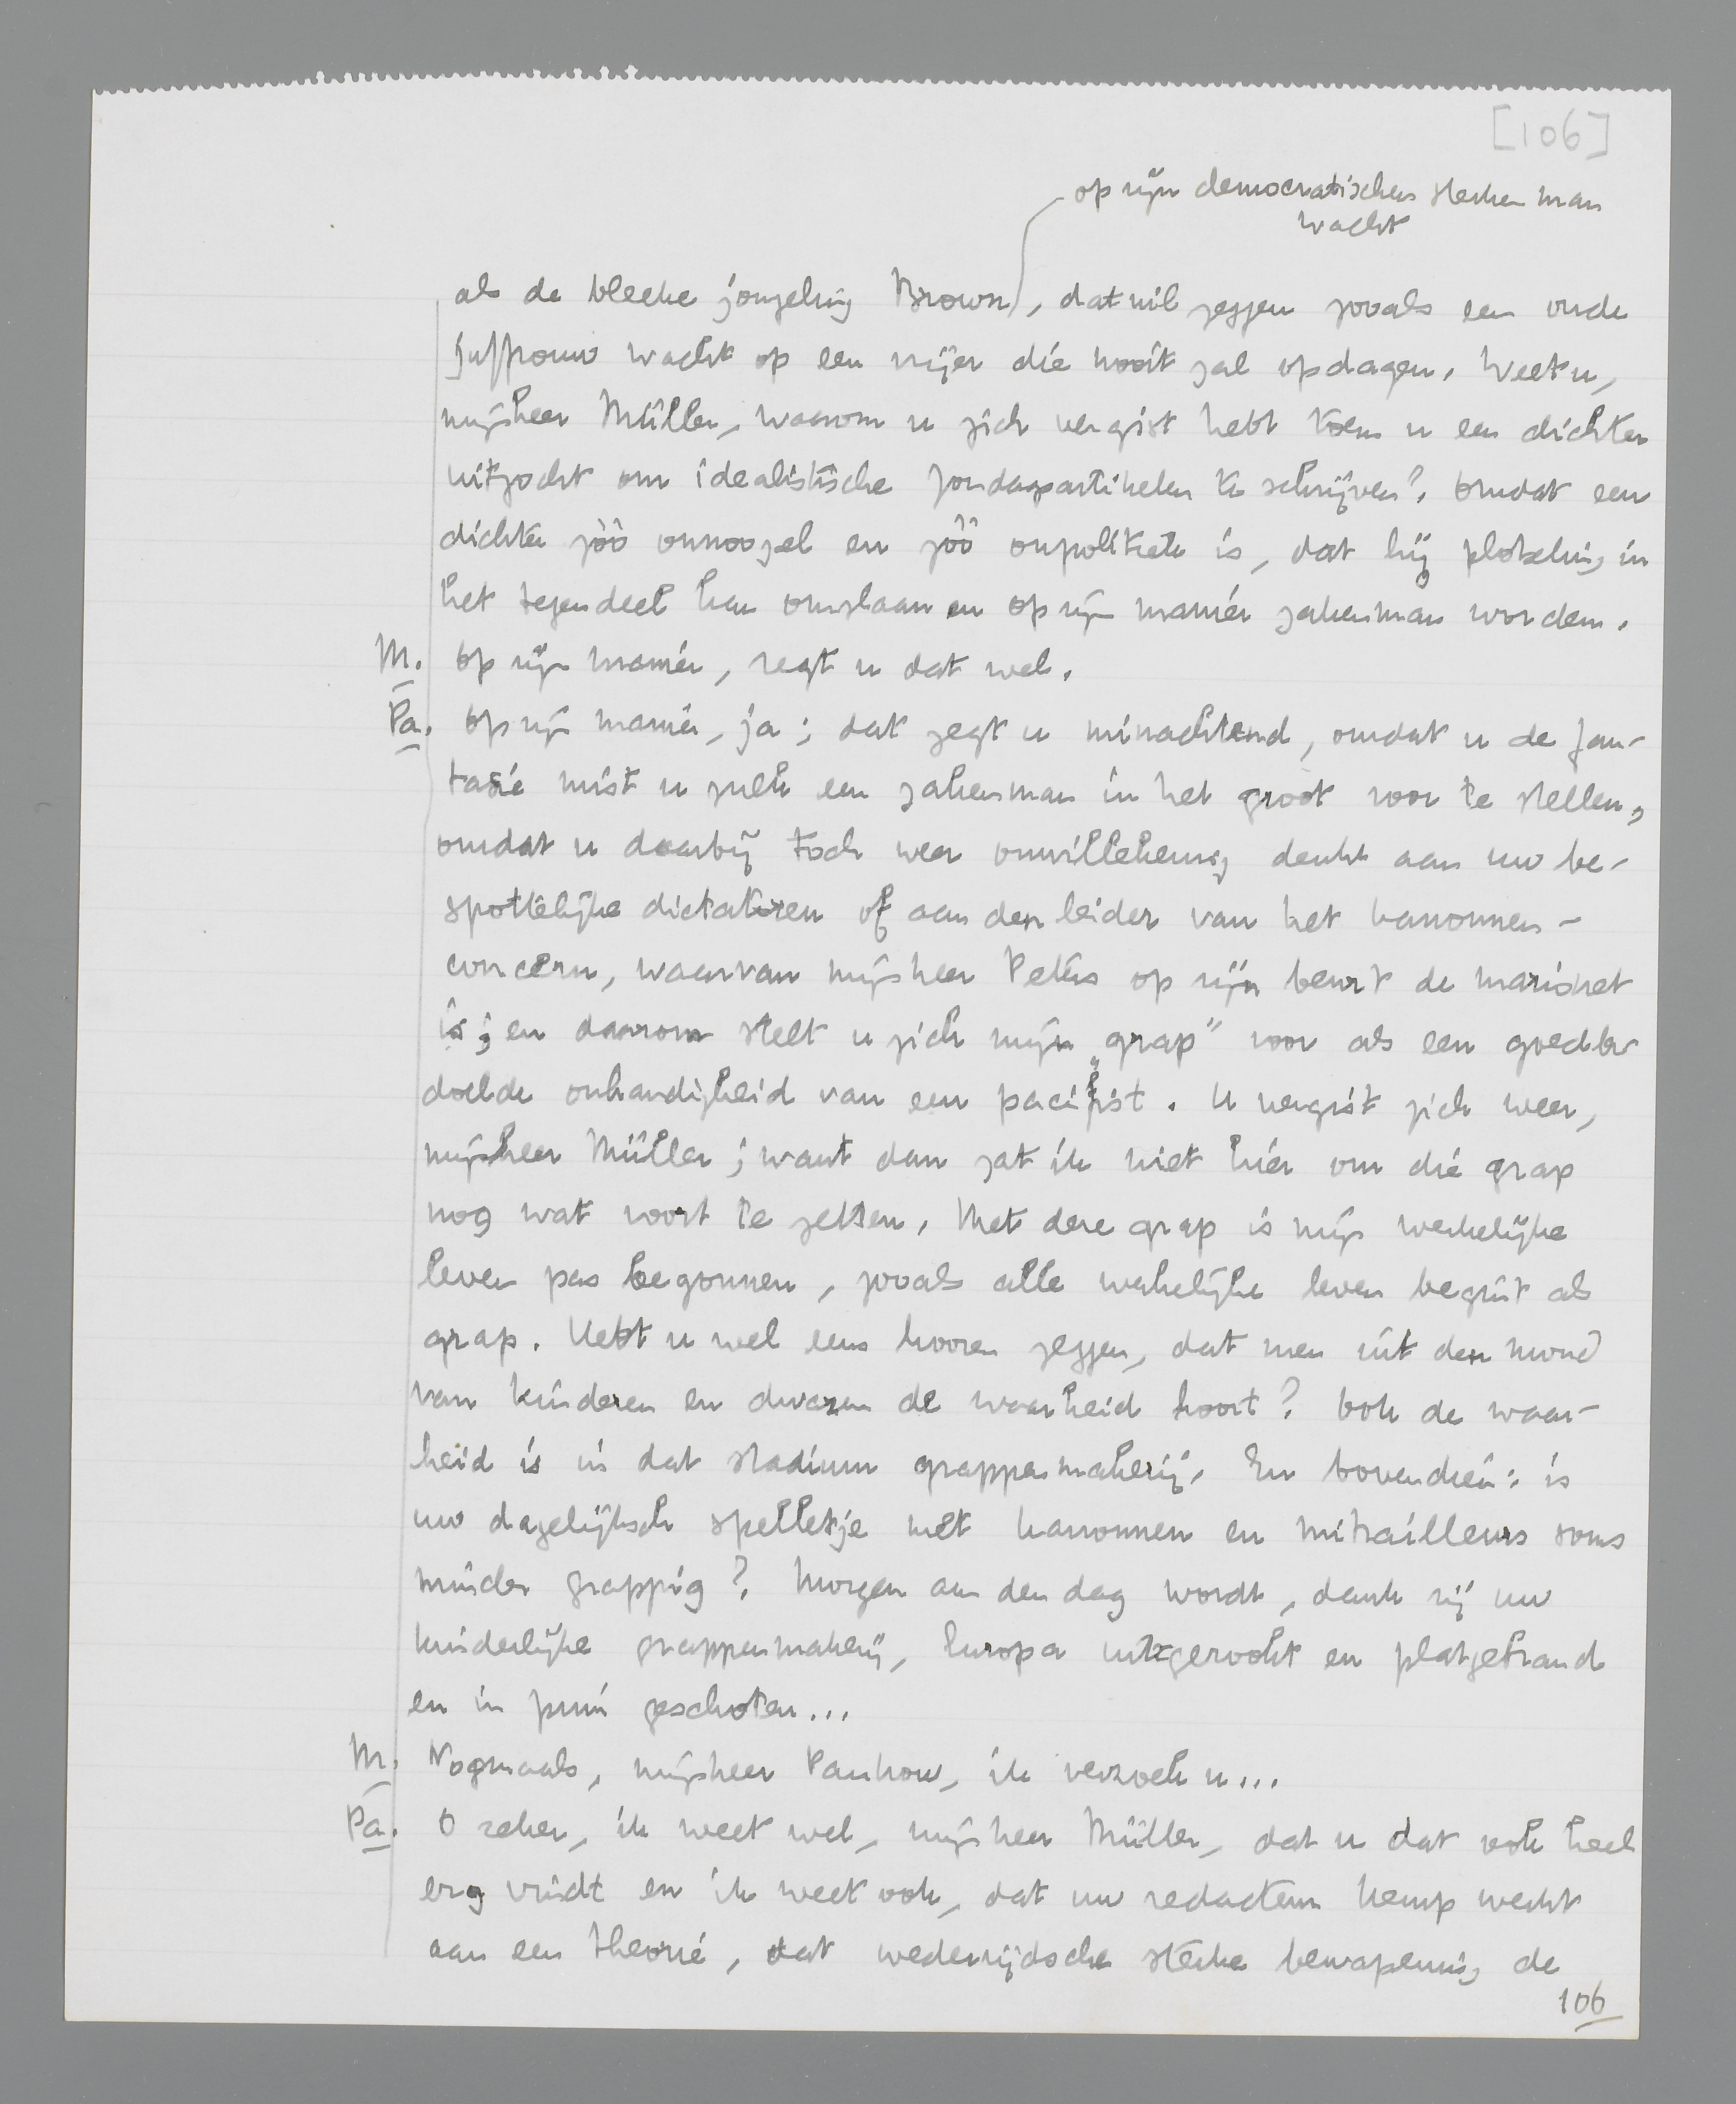 [106]
op zijn democratischen sterken man
wacht
als de bleeke jongeling Brown, dat wil zeggen zooals een oude
juffrouw wacht op een vrijer die nooit zal opdagen. Weet u,
mijnheer Müller, waarom u zich vergist hebt toen u een dichter
uitzocht om idealistische Zondagsartikelen te schrijven? Omdat een
dichter zóó onnoozel en zóó onpolitiek is, dat hij plotseling in
het tegendeel kan omslaan en op zijn manier zakenman worden.
M. Op zijn manier, zegt u dat wel.
Pa. Op zijn manier, ja; dat zegt u minachtend, omdat u de fan-
tasie mist u zulk een zakenman in het groot voor te stellen,
omdat u daarbij toch weer onwillekeurig denkt aan uw be-
spottelijke dictaturen of aan den leider van het kanonnen-
concern, waarvan mijnheer Peters op zijn beurt de marionet
is; en daarom stelt u zich mijn „grap" voor als een goedbe-
doelde onhandigheid van een pacifist. U vergist zich weer,
mijnheer Müller; want dan zat ik niet hier om die grap
nog wat voort te zetten. Met deze grap is mijn werkelijke
leven pas begonnen, zooals alle werkelijke leven begint als
grap. Hebt u wel eens hooren zeggen, dat men uit den mond
van kinderen en dwazen de waarheid hoort? Ook de waar-
heid is in dat stadium grappenmakerij. En bovendien: is
uw dagelijksch spelletje met kanonnen en mitrailleurs soms
minder grappig? Morgen aan den dag wordt, dank zij uw
kinderlijke grappenmakerij, Europa uitgerookt en platgebrand
en in puin geschoten...
M. Nogmaals, mijnheer Pankow, ik verzoek u...
Pa. O zeker, ik weet wel, mijnheer Müller, dat u dat ook heel
erg vindt en ik weet ook, dat uw redacteur Kemp werkt
aan een theorie, dat wederzijdsche sterke bewapening de
106